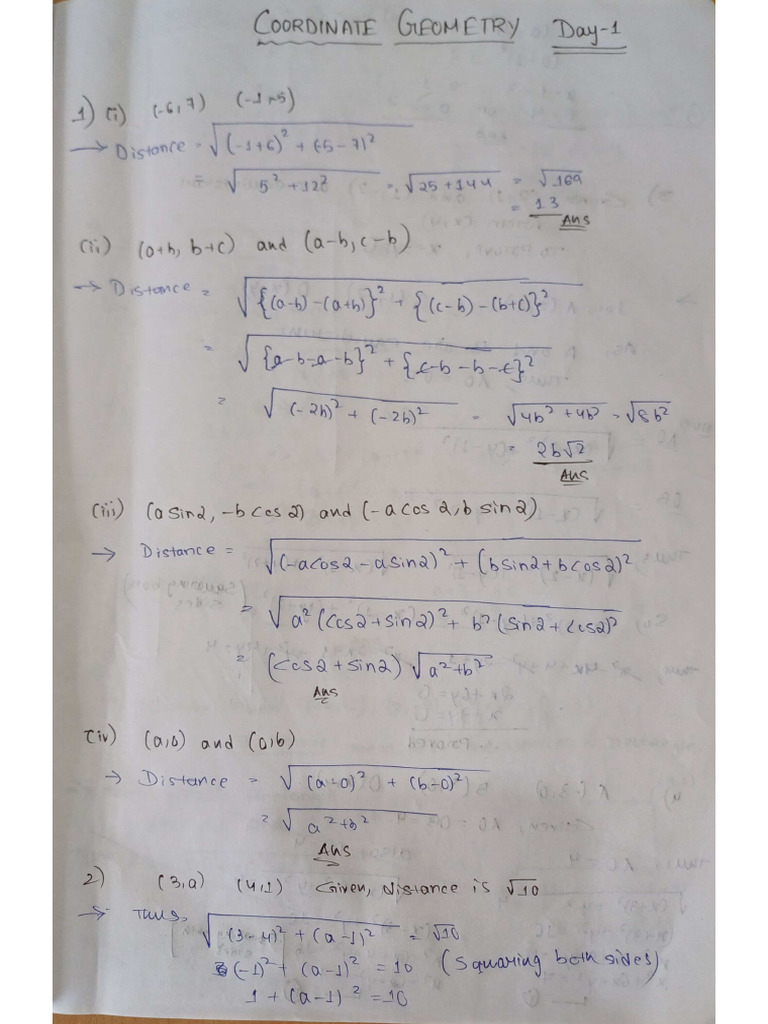 COORDINATE GEOMETRY Day-1
1) (i) (-6,7) (-1,-5)
→ Distance = √((-1+6)² + (-5-7)²)
= √(5²+12²) = √(25+144) = √169
= 13
Ans
(ii) (a+b, b+c) and (a-b, c-b)
→ Distance = √({(a-b)-(a+b)}² + {(c-b)-(b+c)}²)
= √({a-b-a-b}² + {c-b-b-c}²)
= √((-2b)² + (-2b)²) = √(4b²+4b²) = √8b²
= 2b√2
Ans
(iii) (a sin2, -b cos2) and (-a cos2, b sin2)
→ Distance = √((-acos2-asin2)² + (bsin2+bcos2)²)
= √(a²(cos2+sin2)² + b²(sin2+cos2)²)
= (cos2+sin2) √(a²+b²)
Ans
(iv) (a,0) and (0,b)
→ Distance = √((a-0)² + (b-0)²)
= √(a²+b²)
Ans
2) (3,a) (4,1) Given, distance is √10
→ Thus, √((3-4)² + (a-1)²) = √10
(-1)² + (a-1)² = 10 (Squaring both sides)
1 + (a-1)² = 10